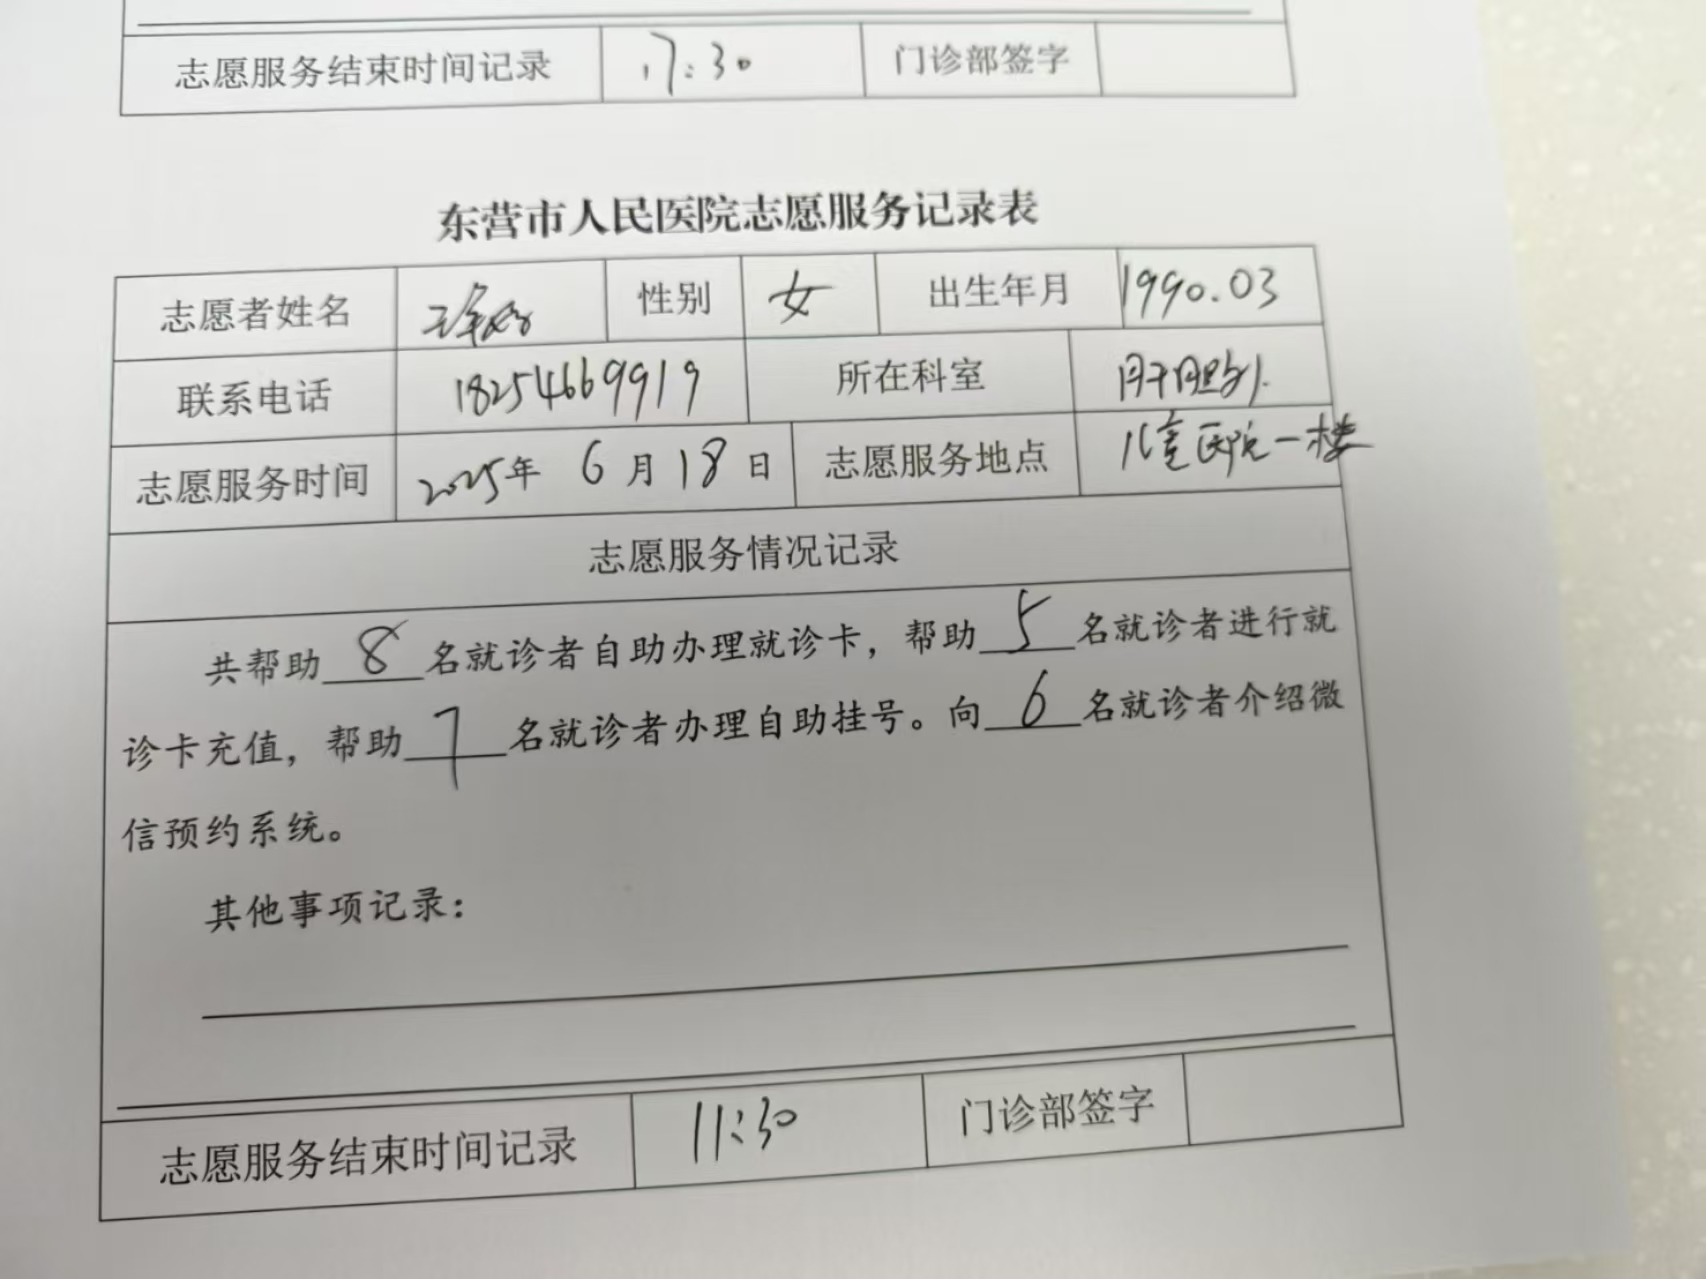 志愿服务结束时间记录 17:30 门诊部签字
东营市人民医院志愿服务记录表
志愿者姓名 性别 女 出生年月 1990.03
联系电话 18254669919 所在科室 肝胆外
志愿服务时间 2025年 6月18日 志愿服务地点 儿童医院一楼
志愿服务情况记录
共帮助8名就诊者自助办理就诊卡，帮助5名就诊者进行就
诊卡充值，帮助7名就诊者办理自助挂号。向6名就诊者介绍微
信预约系统。
其他事项记录：
志愿服务结束时间记录 11:30 门诊部签字